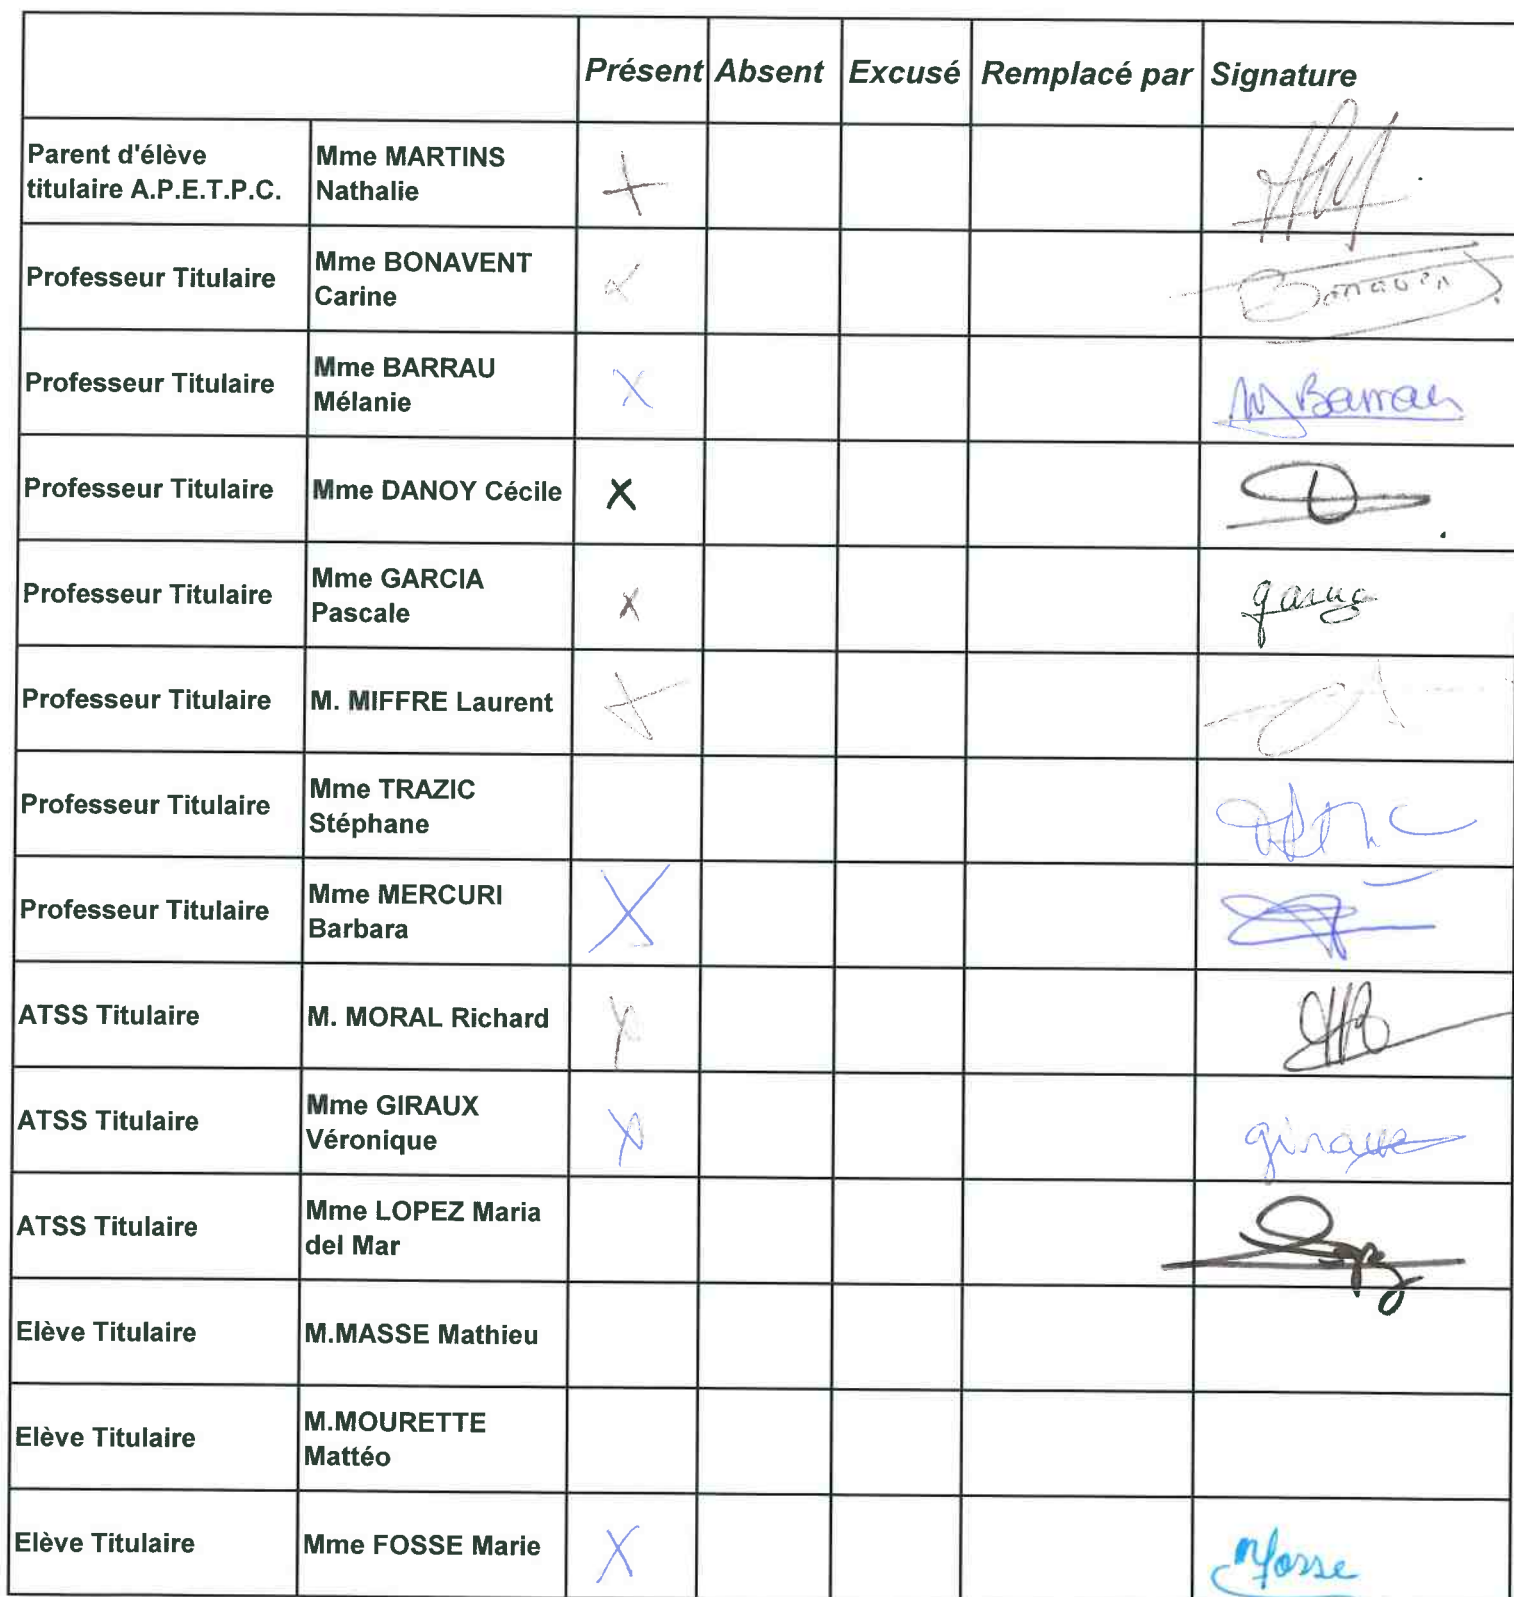 Présent Absent Excusé Remplacé par Signature
Parent d'élève
titulaire A.P.E.T.P.C.
Mme MARTINS
Nathalie
Professeur Titulaire
Mme BONAVENT
Carine
Bonavent
Professeur Titulaire
Mme BARRAU
Mélanie
M Barrau
Professeur Titulaire
Mme DANOY Cécile
X
Professeur Titulaire
Mme GARCIA
Pascale
X
garcia
Professeur Titulaire
M. MIFFRE Laurent
Professeur Titulaire
Mme TRAZIC
Stéphane
Professeur Titulaire
Mme MERCURI
Barbara
X
ATSS Titulaire
M. MORAL Richard
ATSS Titulaire
Mme GIRAUX
Véronique
giraux
ATSS Titulaire
Mme LOPEZ Maria
del Mar
Lopez
Elève Titulaire
M.MASSE Mathieu
Elève Titulaire
M.MOURETTE
Mattéo
Elève Titulaire
Mme FOSSE Marie
X
MFosse